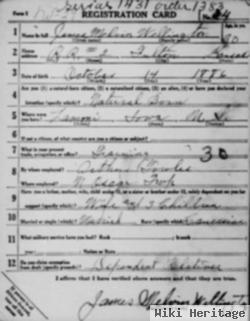 Serial 1431 order 1383
Form 1
REGISTRATION CARD No. 84
1 Name in full James Melvin Wellington 30
2 Home address R.R. #2 Fulton Kansas
3 Date of birth October 14 1886
4 Are you (1) a natural-born citizen, (2) a naturalized citizen, (3) an alien, (4) or have you declared your
intention (specify which)? Natural Born
5 Where were you born? Lamoni Iowa
6 If not a citizen, of what country are you a citizen or subject?
7 What is your present trade, occupation, or office? Farming 30
8 By whom employed?
Where employed?
9 Have you a father, mother, wife, child under 12, or a sister or brother under 12, solely dependent on you for
support (specify which)? Wife 3 Children
10 Married or single (which)? Married Race (specify which)? Caucasian
11 What military service have you had? Rank branch
years Nation or State
12 Do you claim exemption from draft (specify grounds)? Dependent Relatives
I affirm that I have verified above answers and that they are true.
James Melvin
Wiki Heritage